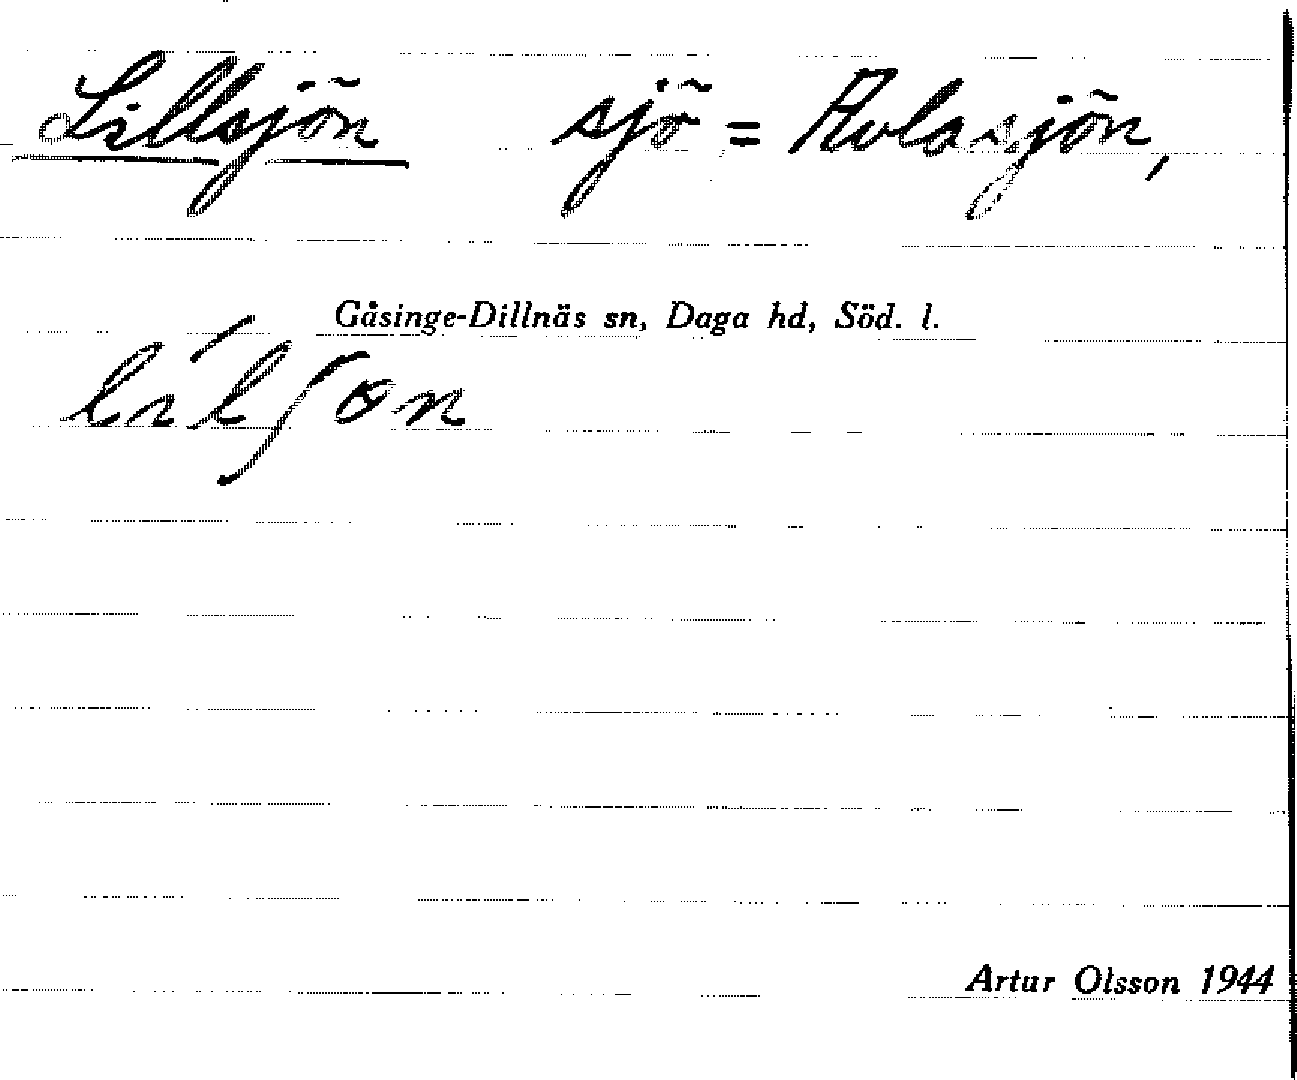 Lillsjön sjö = Avlasjön,
Gåsinge-Dillnäs sn, Daga hd, Söd. l.
Artur Olsson 1944